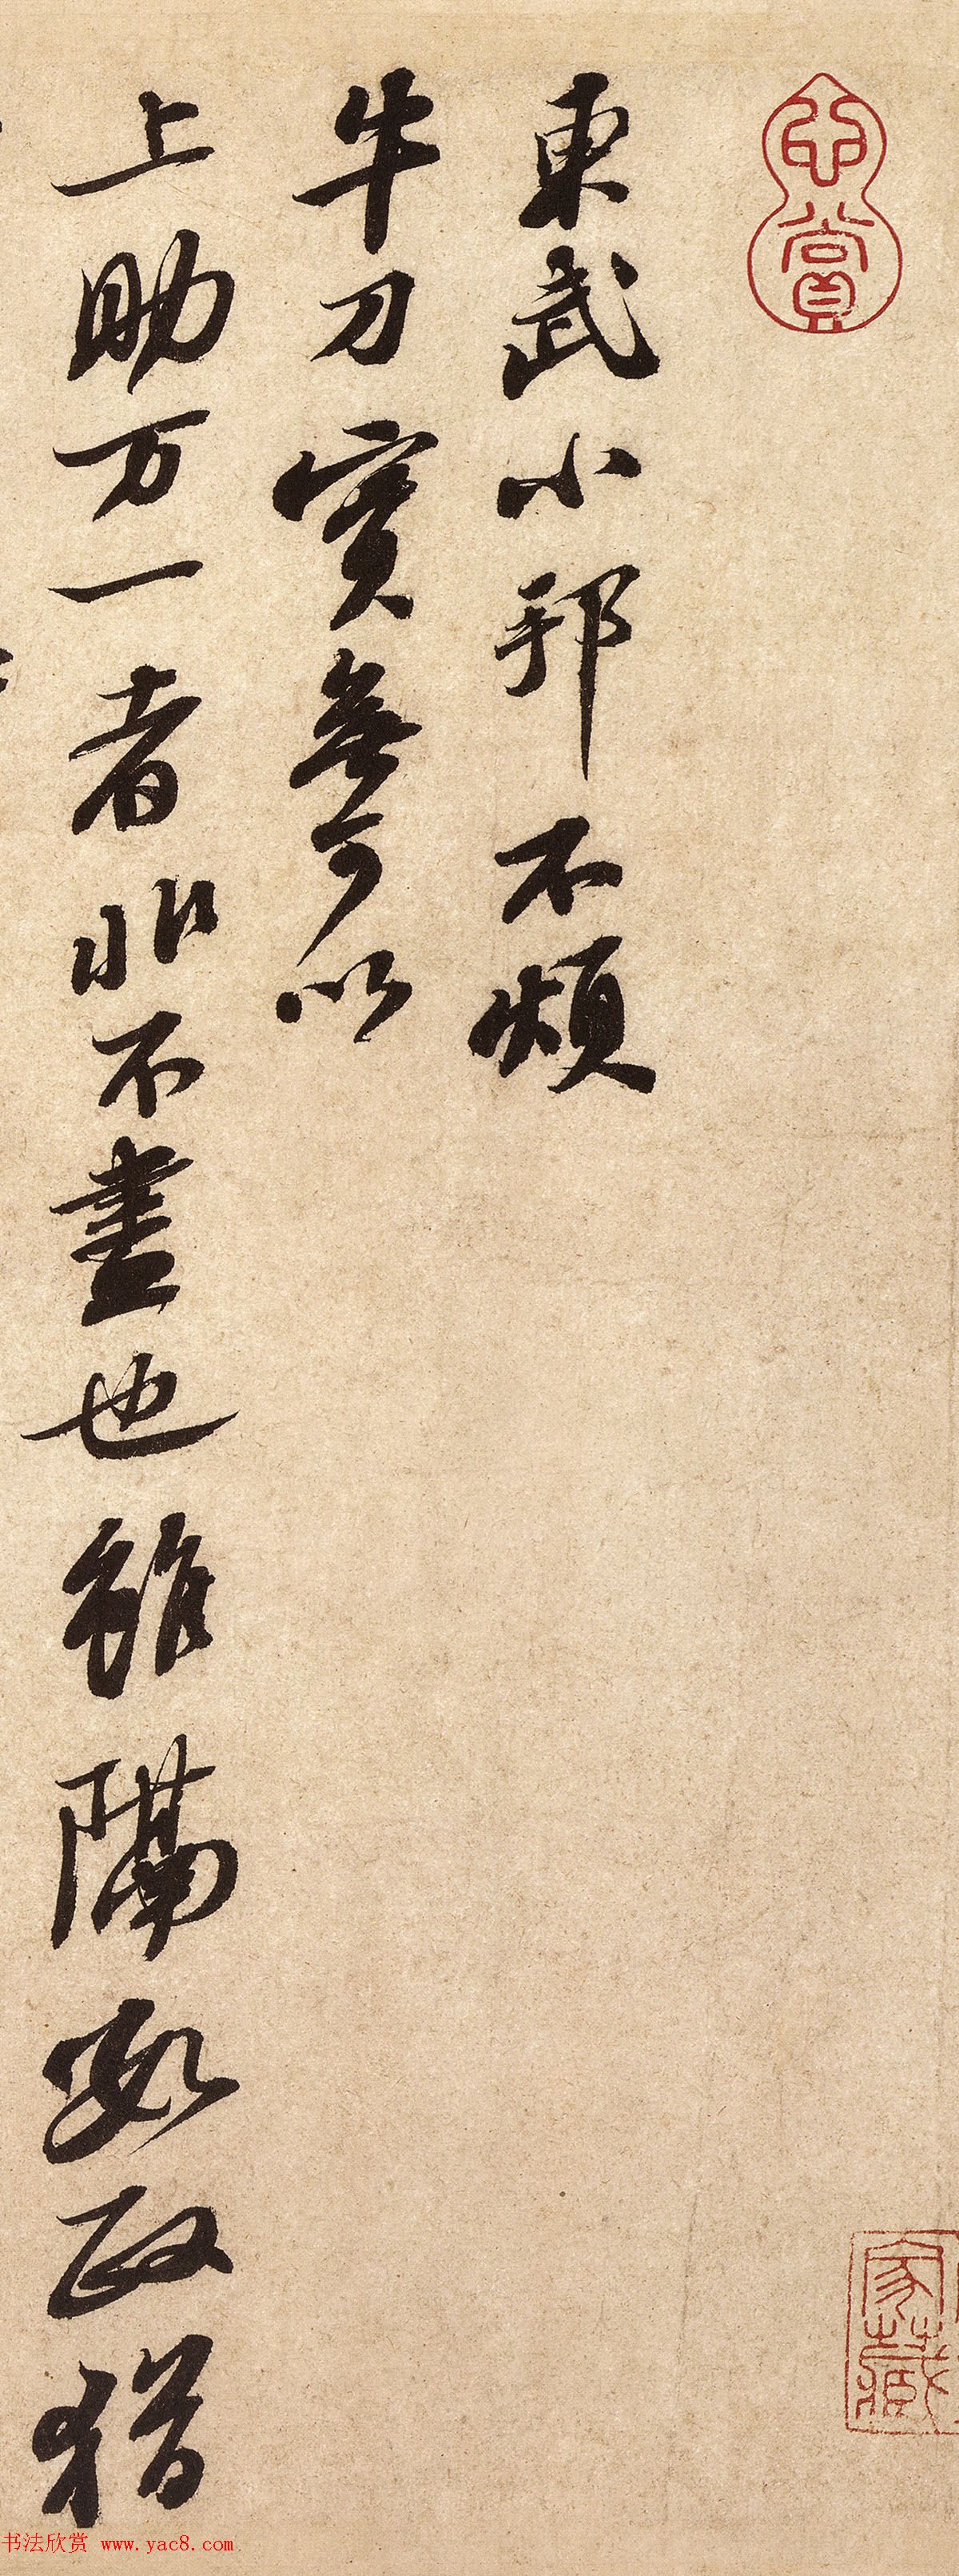 東武小邦不煩
牛刀實無可以
上助万一者非不盡也雖隔數政猶
心賞
家藏
书法欣赏 www.yac8.com